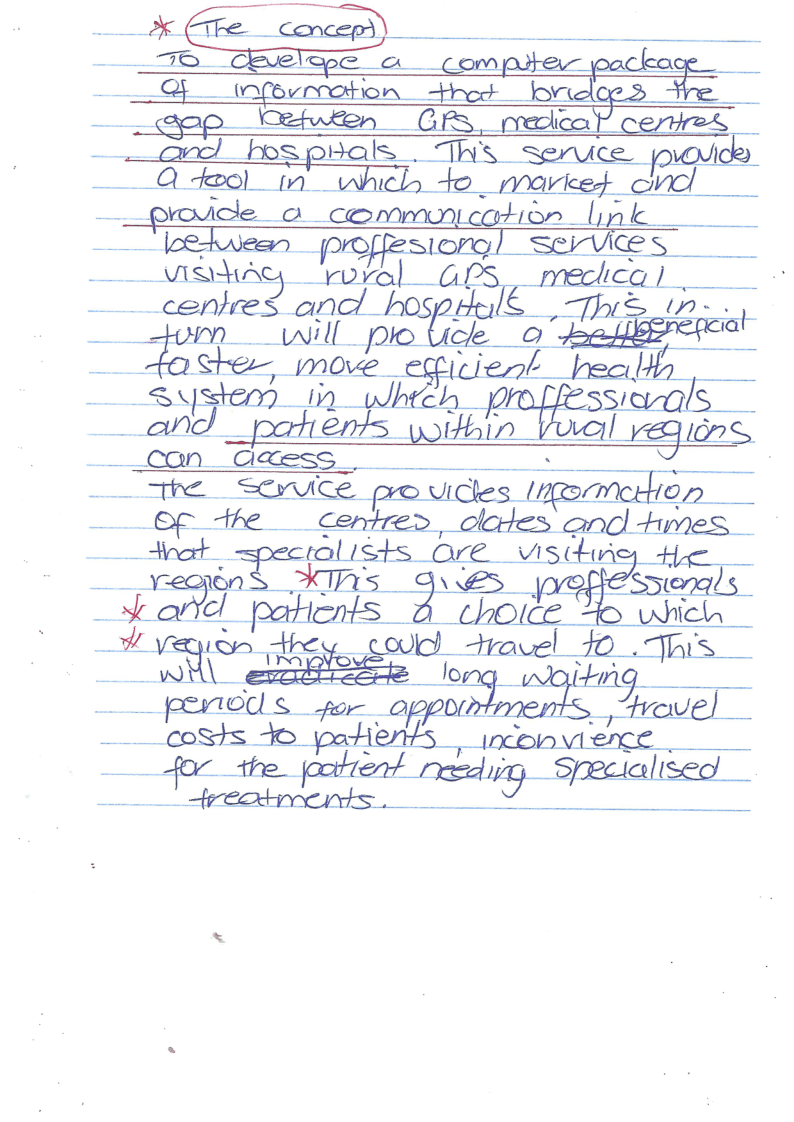 * The concept
To develope a computer package
of information that bridges the
gap between GPS, medical centres
and hospitals. This service provides
a tool in which to market and
provide a communication link
between proffesional services
visiting rural GPS medical
centres and hospitals. This in
turn will provide a beneficial
faster, more efficient health
system in which proffessionals
and patients within rural regions
can access.
The service provides information
of the centres, dates and times
that specialists are visiting the
regions *This gives proffessionals
* and patients a choice to which
* region they could travel to. This
will eradicate improve long waiting
periods for appointments, travel
costs to patients, inconvience
for the patient needing specialised
treatments.